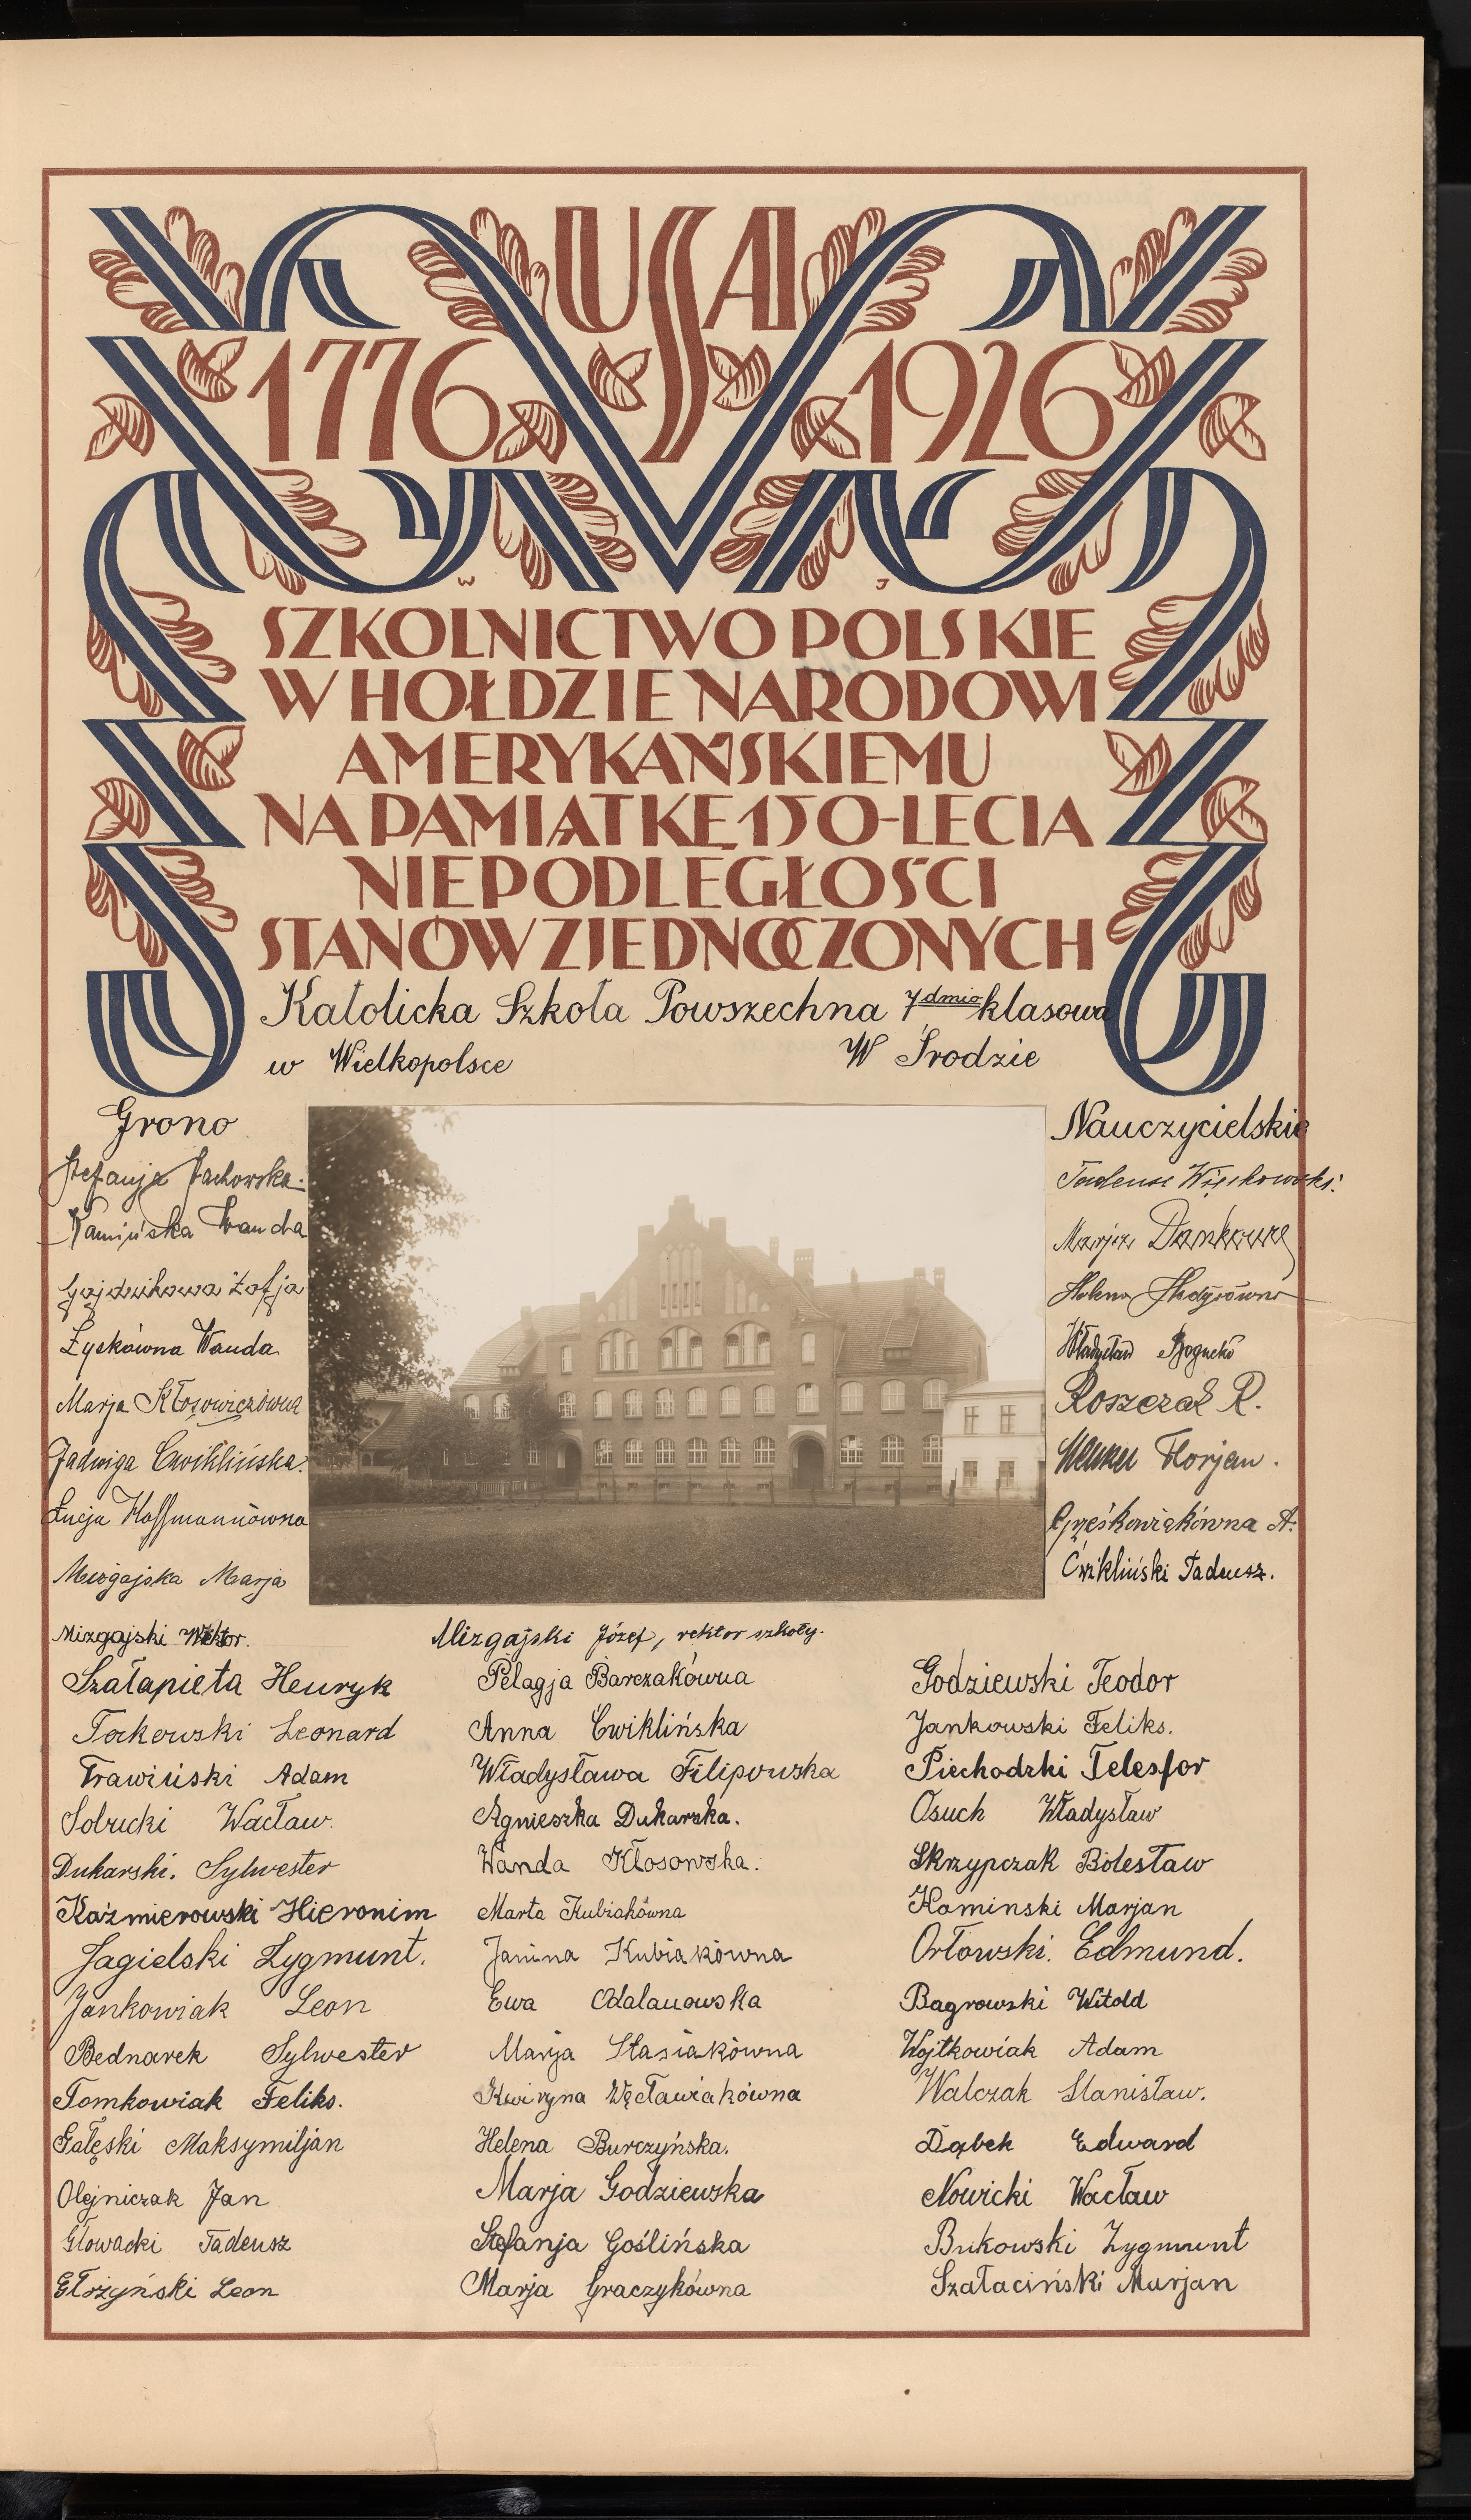 USA
1776 1926
W J
SZKOLNICTWO POLSKIE
W HOŁDZIE NARODOWI
AMERYKAŃSKIEMU
NA PAMIĄTKĘ 150-LECIA
NIEPODLEGŁOŚCI
STANÓW ZJEDNOCZONYCH
Katolicka Szkoła Powszechna 7dmio klasowa
w Wielkopolsce W Środzie
Grono
Stefanja Jachowska.
Kamińska Wanda
Gajdzikowa Zofja
Łyskówna Wanda
Marja Kłosowiczówna
Jadwiga Ćwiklińska.
Łucja Hoffmannówna
Mizgajska Marja
Mizgajski Wiktor.
Nauczycielskie
Tadeusz Więckowski.
Marja
Helena
Władysław
Roszczak R.
Florjan.
Grześkowiakówna A.
Ćwikliński Tadeusz.
Mizgajski Józef, rektor szkoły.
Szałapieta Henryk
Tockowski Leonard
Trawiński Adam
Sobucki Wacław.
Dukarski. Sylwester
Kaźmierowski Hieronim
Jagielski Zygmunt.
Jankowiak Leon
Bednarek Sylwester
Tomkowiak Feliks.
Gałęski Maksymiljan
Olejniczak Jan
Głowacki Tadeusz
Leon
Pelagja Barczakówna
Anna Cwiklińska
Władysława Filipowska
Agnieszka Dukarska.
Wanda Kłosowska.
Marta Kubiakówna
Janina Kubiakówna
Ewa Odalanowska
Marja Stasiakówna
Kwiryna Węcławiakówna
Helena Burczyńska.
Marja Godziewska
Stefanja Goślińska
Marja Graczykówna
Godziewski Teodor
Jankowski Feliks.
Piechodzki Telesfor
Osuch Władysław
Skrzypczak Bolesław
Kaminski Marjan
Orłowski. Edmund.
Bagrowski Witold
Wojtkowiak Adam
Walczak Stanisław.
Dąbek Edward
Nowicki Wacław
Bukowski Zygmunt
Szałaciński Marjan